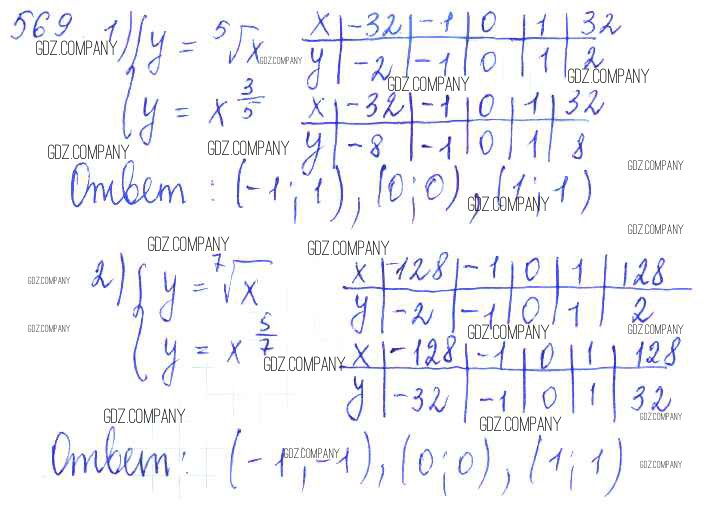 569 1) { y = ⁵√x x | -32 | -1 | 0 | 1 | 32
GDZ.COMPANY GDZ.COMPANY y | -2 | -1 | 0 | 1 | 2 GDZ.COMPANY
GDZ.COMPANY
y = x^(3/5) x | -32 | -1 | 0 | 1 | 32
GDZ.COMPANY GDZ.COMPANY y | -8 | -1 | 0 | 1 | 8
GDZ.COMPANY
Ответ : (-1; 1), (0; 0), (1; 1)
GDZ.COMPANY
GDZ.COMPANY
GDZ.COMPANY GDZ.COMPANY
GDZ.COMPANY 2) { y = ⁷√x x | -128 | -1 | 0 | 1 | 128
y | -2 | -1 | 0 | 1 | 2
GDZ.COMPANY GDZ.COMPANY GDZ.COMPANY
y = x^(5/7) x | -128 | -1 | 0 | 1 | 128
GDZ.COMPANY
y | -32 | -1 | 0 | 1 | 32
GDZ.COMPANY GDZ.COMPANY GDZ.COMPANY
Ответ: (-1; -1), (0; 0), (1; 1)
GDZ.COMPANY GDZ.COMPANY